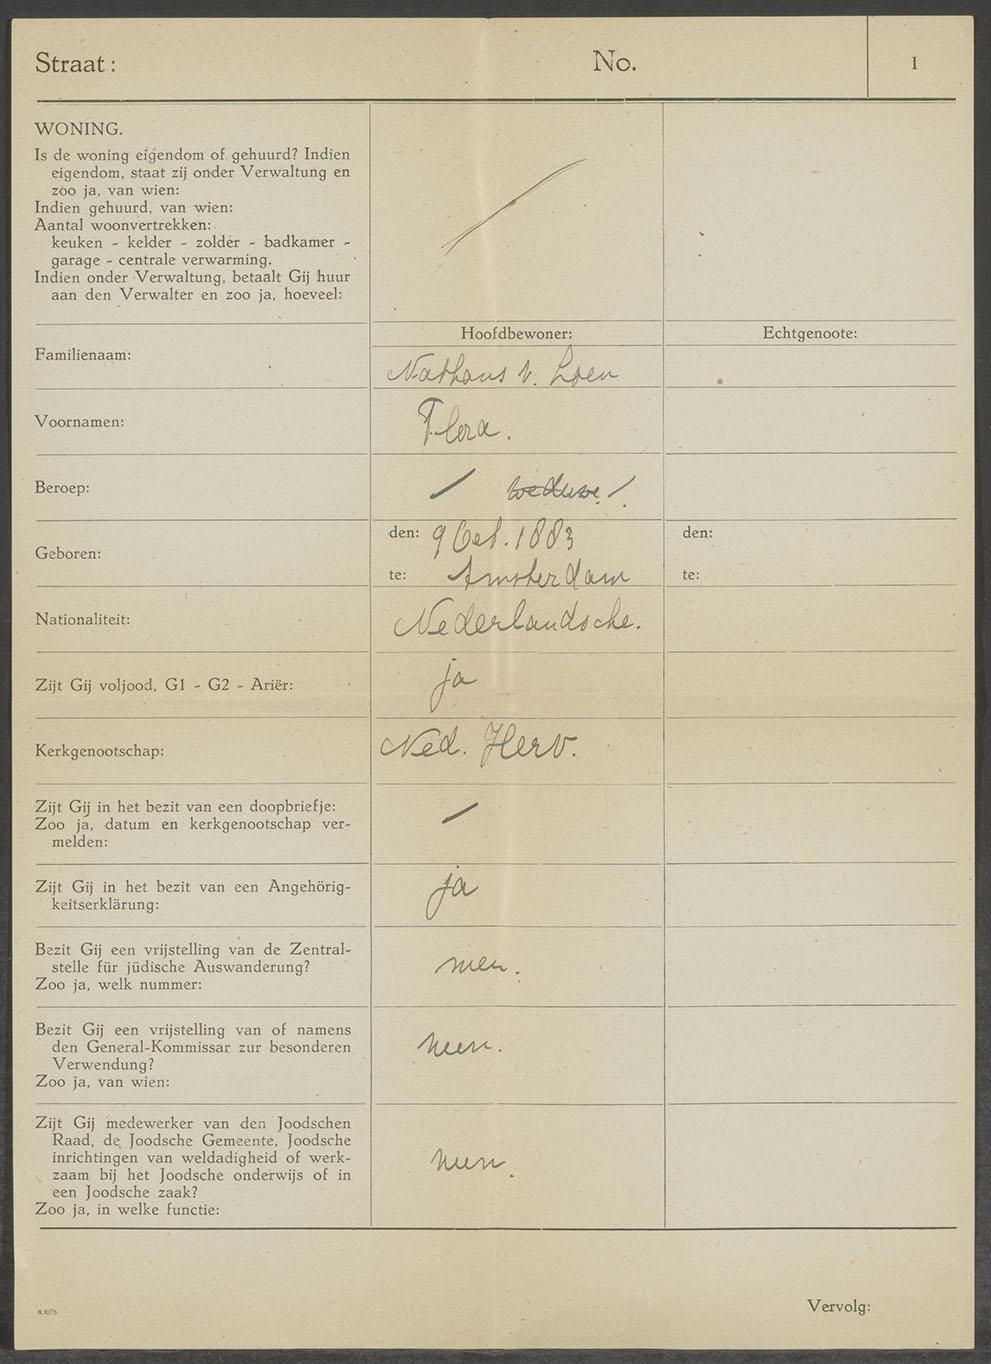 Straat:
No.
I
WONING.
Is de woning eigendom of gehuurd? Indien
eigendom, staat zij onder Verwaltung en
zoo ja, van wien:
Indien gehuurd, van wien:
Aantal woonvertrekken:
keuken - kelder - zolder - badkamer -
garage - centrale verwarming.
Indien onder Verwaltung, betaalt Gij huur
aan den Verwalter en zoo ja, hoeveel:
Hoofdbewoner:
Echtgenoote:
Familienaam:
Nathans v. Loen
Voornamen:
Flora.
Beroep:
weduwe
Geboren:
den: 9 Oct. 1883
den:
te: Amsterdam
te:
Nationaliteit:
Nederlandsche.
Zijt Gij voljood, G1 - G2 - Ariër:
ja
Kerkgenootschap:
Ned. Herv.
Zijt Gij in het bezit van een doopbriefje:
Zoo ja, datum en kerkgenootschap ver-
melden:
Zijt Gij in het bezit van een Angehörig-
keitserklärung:
ja
Bezit Gij een vrijstelling van de Zentral-
stelle für jüdische Auswanderung?
Zoo ja, welk nummer:
neen.
Bezit Gij een vrijstelling van of namens
den General-Kommissar zur besonderen
Verwendung?
Zoo ja, van wien:
neen.
Zijt Gij medewerker van den Joodschen
Raad, de Joodsche Gemeente, Joodsche
inrichtingen van weldadigheid of werk-
zaam bij het Joodsche onderwijs of in
een Joodsche zaak?
Zoo ja, in welke functie:
neen.
Vervolg: